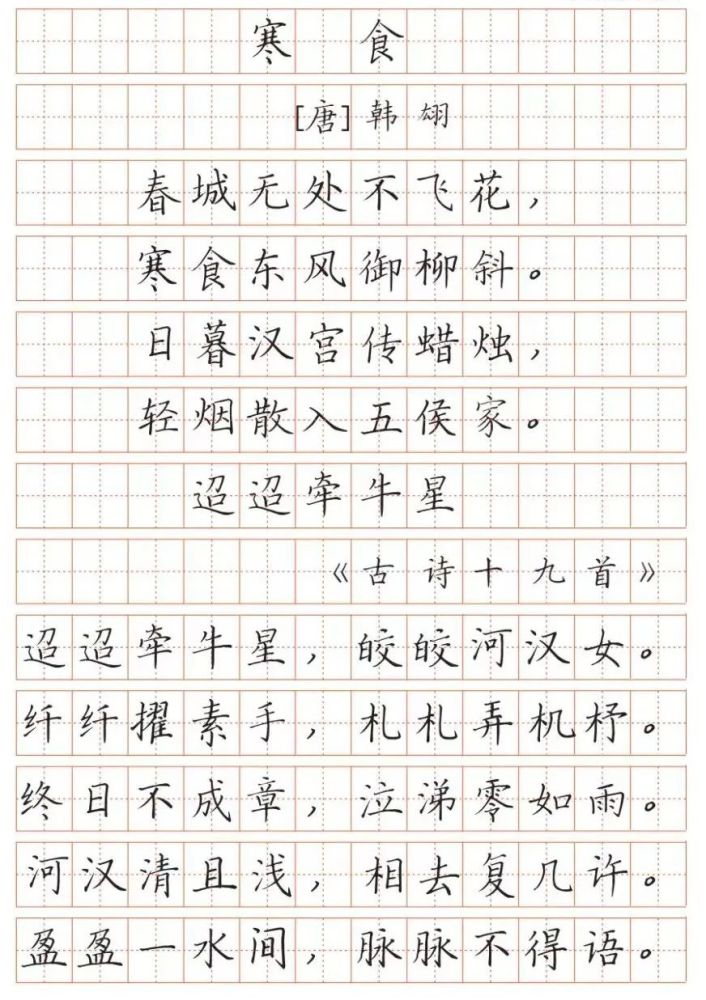 寒食
[唐]韩翃
春城无处不飞花，
寒食东风御柳斜。
日暮汉宫传蜡烛，
轻烟散入五侯家。
迢迢牵牛星
《古诗十九首》
迢迢牵牛星，皎皎河汉女。
纤纤擢素手，札札弄机杼。
终日不成章，泣涕零如雨。
河汉清且浅，相去复几许。
盈盈一水间，脉脉不得语。